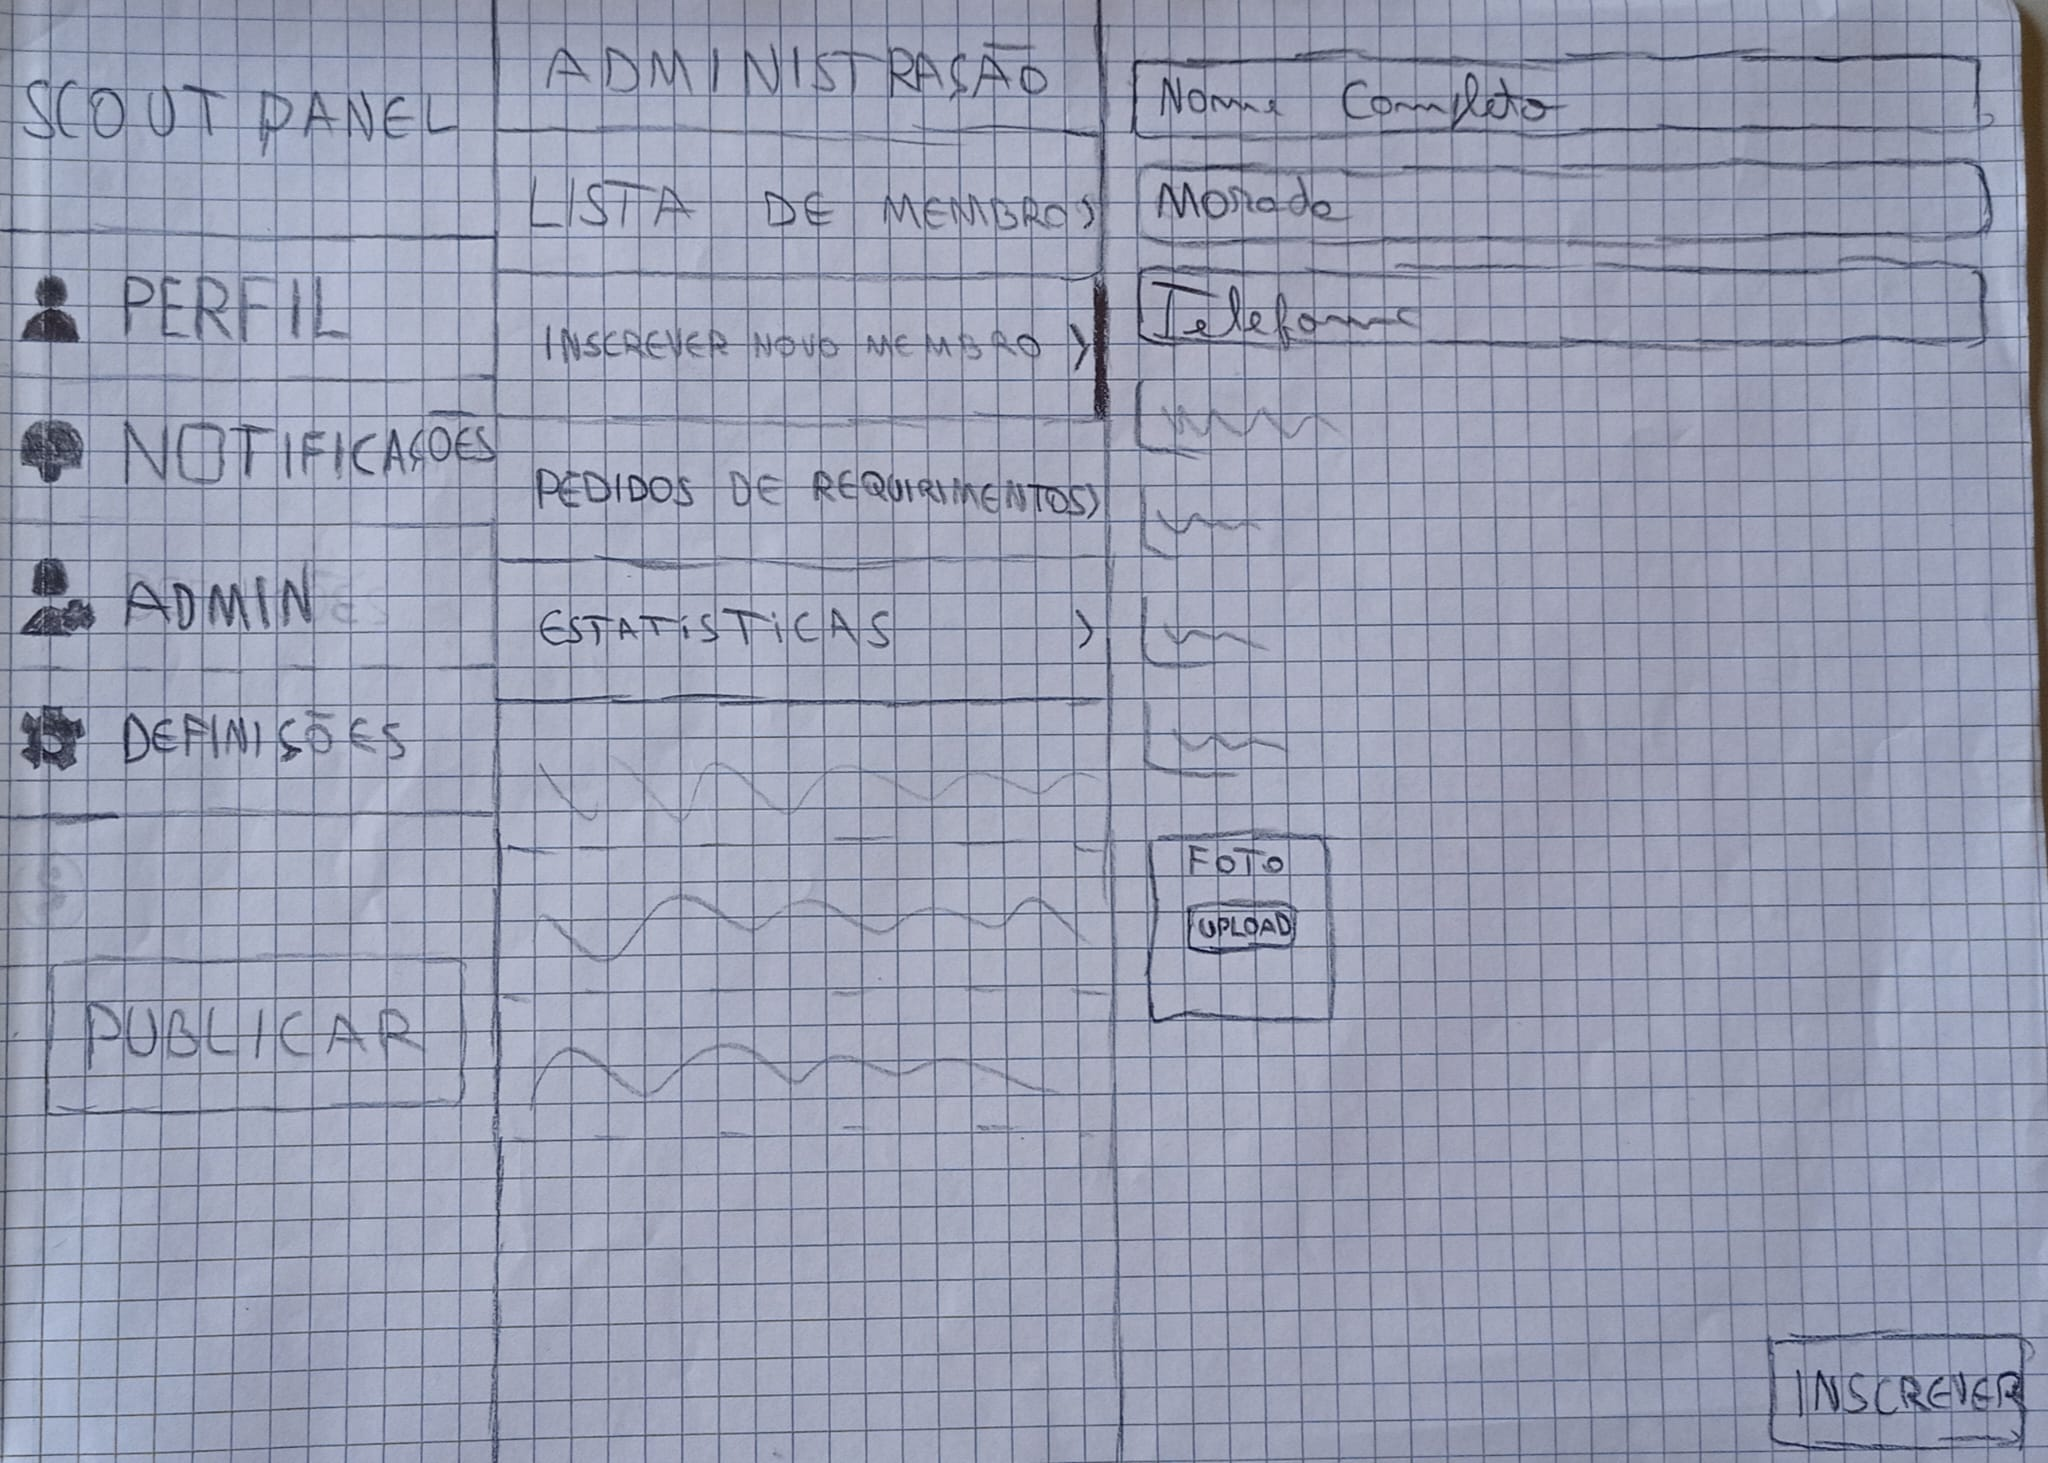 SCOUT PANEL
PERFIL
NOTIFICAÇÕES
ADMIN
DEFINIÇÕES
PUBLICAR
ADMINISTRAÇÃO
LISTA DE MEMBROS
INSCREVER NOVO MEMBRO >
PEDIDOS DE REQUIRIMENTOS >
ESTATíSTiCAS >
Nome Completo
Morada
Telefone
FOTO
UPLOAD
INSCREVER